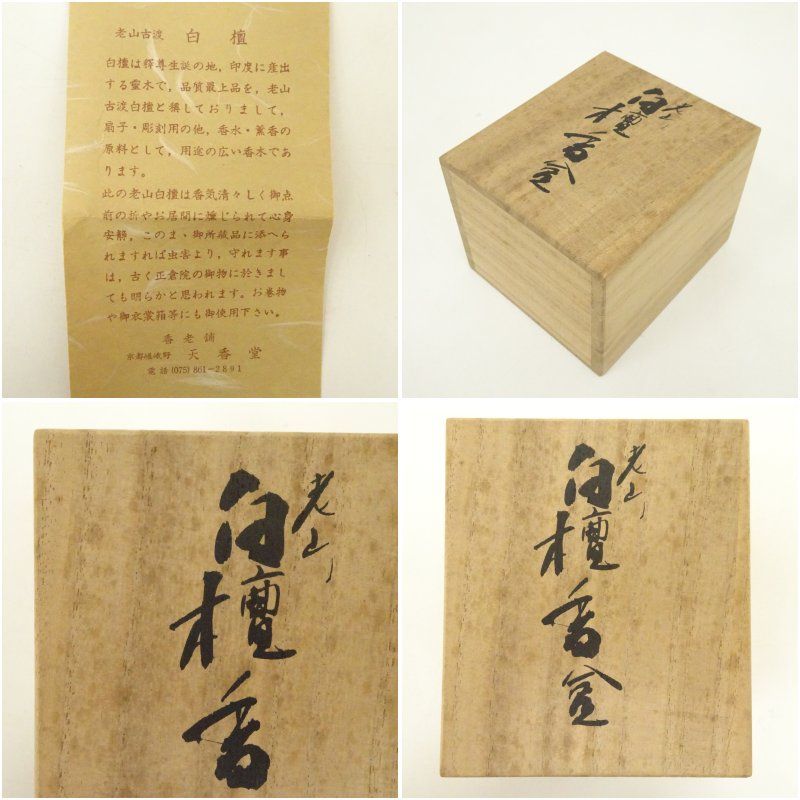 老山古渡 白檀
白檀は釋尊生誕の地，印度に産出
する靈木で，品質最上品を，老山
古渡白檀と稱しておりまして，
扇子・彫刻用の他，香水・薫香の
原料として，用途の広い香木であ
ります。
此の老山白檀は香気清々しく御点
前の折やお居間に燻じられて心身
安靜，このまゝ御所藏品に添へら
れますれば虫害より，守れます事
は，古く正倉院の御物に於きまし
ても明らかと思われます。お巻物
や御衣裳箱等にも御使用下さい。
香老舗
京都嵯峨野 天香堂
電話(075)861-2891
老山
白檀香盒
老山
白檀香
老山
白檀香盒